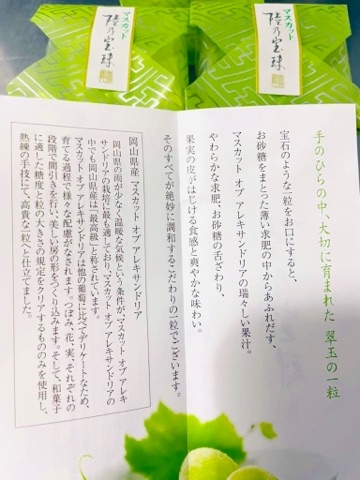 マスカット
陸乃宝珠
マスカット
陸乃宝珠
手のひらの中、大切に育まれた 翠玉の一粒
宝石のような一粒をお口にすると、
お砂糖をまとった薄い求肥の中からあふれだす、
マスカット オブ アレキサンドリアの瑞々しい果汁。
やわらかな求肥、お砂糖の舌ざわり、
果実の皮がはじける食感と爽やかな味わい。
そのすべてが絶妙に調和するこだわりの一粒でございます。
岡山県産 マスカット オブ アレキサンドリア
岡山県の雨が少なく温暖な気候という条件が、マスカット オブ アレキ
サンドリアの栽培に最も適しており、マスカット オブ アレキサンドリアの
中でも岡山県産は「最高級」と称されています。
マスカット オブ アレキサンドリアは他の葡萄に比べてデリケートなため、
育てる過程で様々な配慮がなされます。つぼみ、花、実、それぞれの
段階で間引きを行い、美しい房の形をつくり込みます。そして、和菓子
に適した糖度と粒の大きさの規定をクリアするもののみを使用し、
熟練の手技にて、高貴な一粒へと仕立てました。